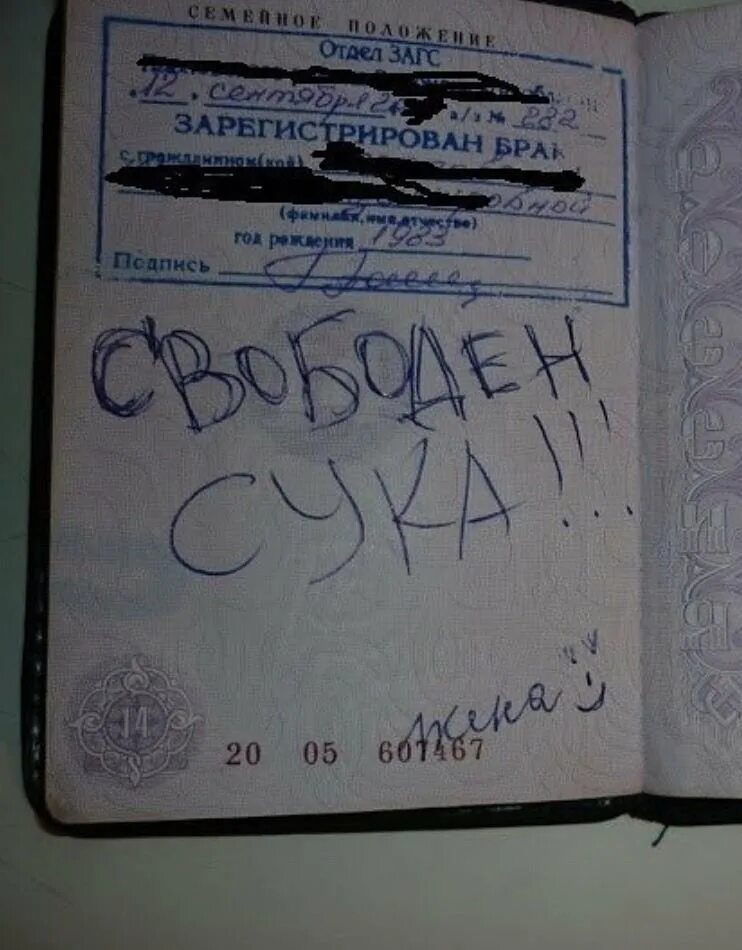 СЕМЕЙНОЕ ПОЛОЖЕНИЕ
Отдел ЗАГС
12 сентября 2 а/з № 232
ЗАРЕГИСТРИРОВАН БРАК
с гражданином(кой)
овной
(фамилия, имя, отчество)
год рождения 1983
Подпись
СВОБОДЕН
СУКА!!!
жена
14
20 05 607467